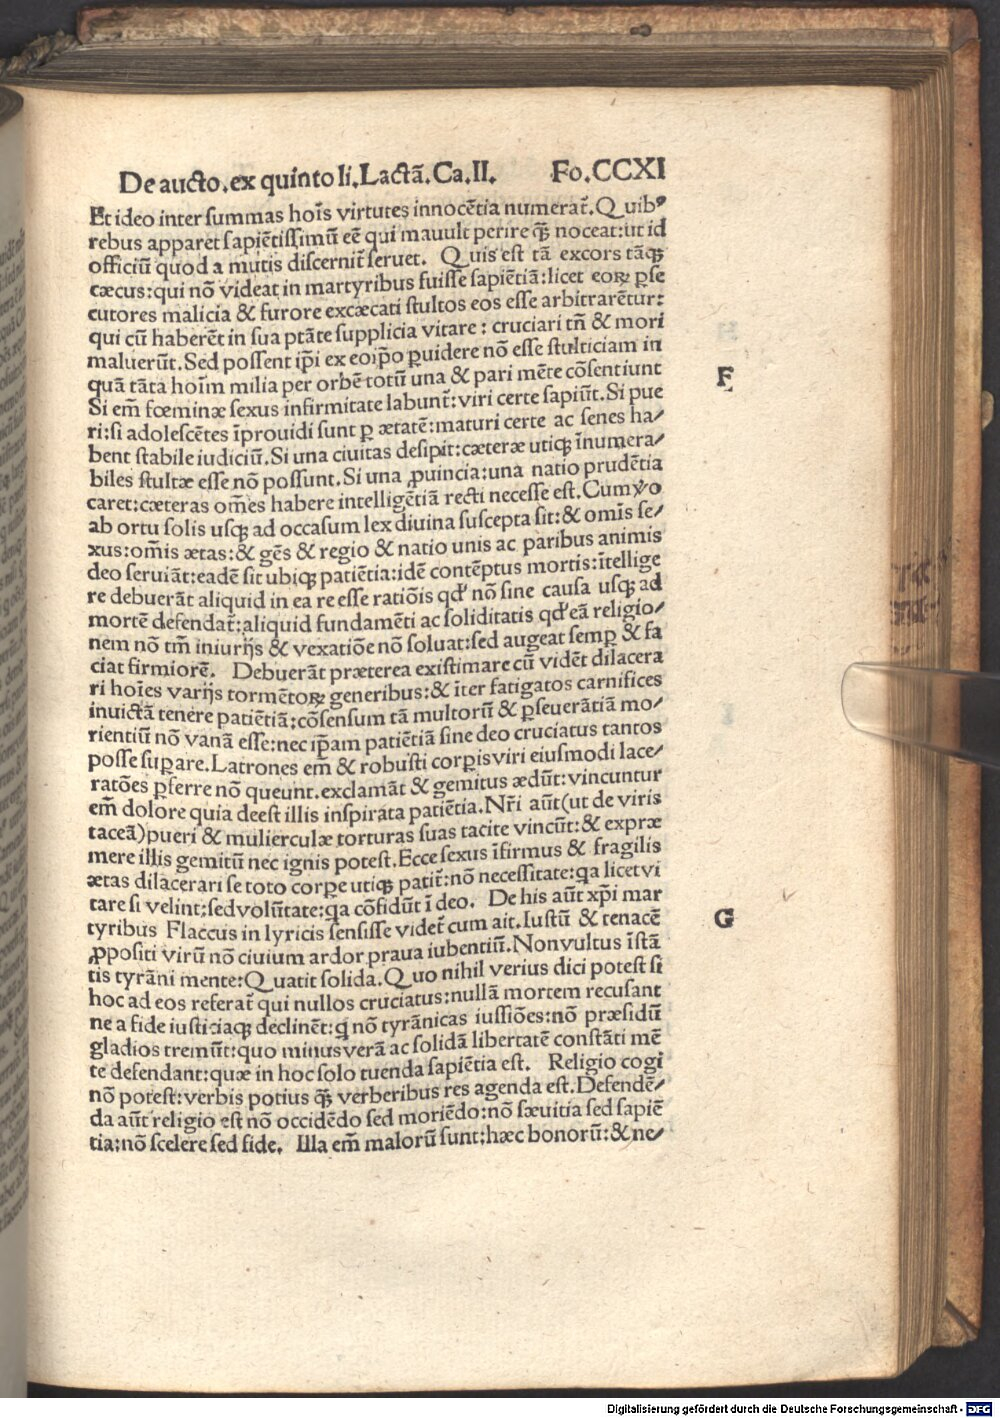 De aucto. ex quinto li. Lactā. Ca. II. Fo. CCXI
Et ideo inter summas hoīs virtutes innocētia numerat̄. Quibꝰ
rebus apparet sapiētissimū eē qui mauult perire q̄ꝫ noceat: ut id
officiū quod a mutis discernit̄ seruet. Quis est tā excors tāqꝫ
cæcus: qui nō videat in martyribus fuisse sapiētiā: licet eoꝝ ꝑse
cutores malicia & furore excæcati stultos eos esse arbitrarētur:
qui cū haberēt in sua ptāte supplicia vitare: cruciari tn̄ & mori
maluerūt. Sed possent ip̄i ex eoip̄o ꝓuidere nō esse stulticiam in
quā tāta hoīm milia per orbē totū una & pari mēte cōsentiunt
F
Si em̄ fœminæ sexus infirmitate labunt̄: viri certe sapiūt. Si pue
ri: si adolescētes īprouidi sunt ꝑ ætatē: maturi certe ac senes ha⸗
bent stabile iudiciū. Si una ciuitas desipit: cæteræ utiqꝫ īnumera⸗
biles stultæ esse nō possunt. Si una ꝓuincia: una natio prudētia
caret: cæteras om̄es habere intelligētiā recti necesse est. Cum ꝟo
ab ortu solis usqꝫ ad occasum lex diuina suscepta sit: & omīs se⸗
xus: om̄is ætas: & gēs & regio & natio unis ac paribus animis
deo seruiāt: eadē sit ubiqꝫ patiētia: idē contēptus mortis: ītellige
re debuerāt aliquid in ea re esse ratiōis qd' nō sine causa usqꝫ ad
mortē defendat̄: aliquid fundamēti ac soliditatis qd' eā religio⸗
nem nō tm̄ iniurijs & vexatiōe nō soluat: sed augeat semꝑ & fa
ciat firmiorē. Debuerāt præterea existimare cū vidēt dilacera
ri hoīes varijs tormētoꝝ generibus: & īter fatigatos carnifices
inuictā tenere patiētiā: cōsensum tā multorū & ꝑseuerātiā mo⸗
rientiū nō vanā esse: nec ip̄am patiētiā sine deo cruciatus tantos
posse suꝑare. Latrones em̄ & robusti corꝑis viri eiusmodi lace⸗
ratōes ꝑferre nō queunt. exclamāt & gemitus ædūt: vincuntur
em̄ dolore quia deest illis inspirata patiētia. Nr̄i aūt (ut de viris
taceā) pueri & mulierculæ torturas suas tacite vincūt: & expræ
mere illis gemitū nec ignis potest. Ecce sexus īfirmus & fragilis
ætas dilacerari se toto corꝑe utiqꝫ patit̄: nō necessitate: q̄a licet vi
tare si velint: sed volūtate: q̄a cōfidūt ī deo. De his aūt xp̄i mar
G
tyribus Flaccus in lyricis sensisse videt̄ cum ait. Iustū & tenacē
ꝓpositi virū nō ciuium ardor praua iubentiū. Non vultus īstā
tis tyrāni mente: Quatit solida. Quo nihil verius dici potest si
hoc ad eos referat̄ qui nullos cruciatus: nullā mortem recusant
ne a fide iusticiaqꝫ declinēt: q̄ nō tyrānicas iussiōes: nō præsidū
gladios tremūt: quo minus verā ac solidā libertatē constāti mē
te defendant: quæ in hoc solo tuenda sapiētia est. Religio cogi
nō potest: verbis potius q̄ꝫ verberibus res agenda est. Defendē⸗
da aūt religio est nō occidēdo sed moriēdo: nō sæuitia sed sapiē
tia: nō scelere sed fide. Illa em̄ malorū sunt: hæc bonorū: & ne⸗
Digitalisierung gefördert durch die Deutsche Forschungsgemeinschaft - DFG